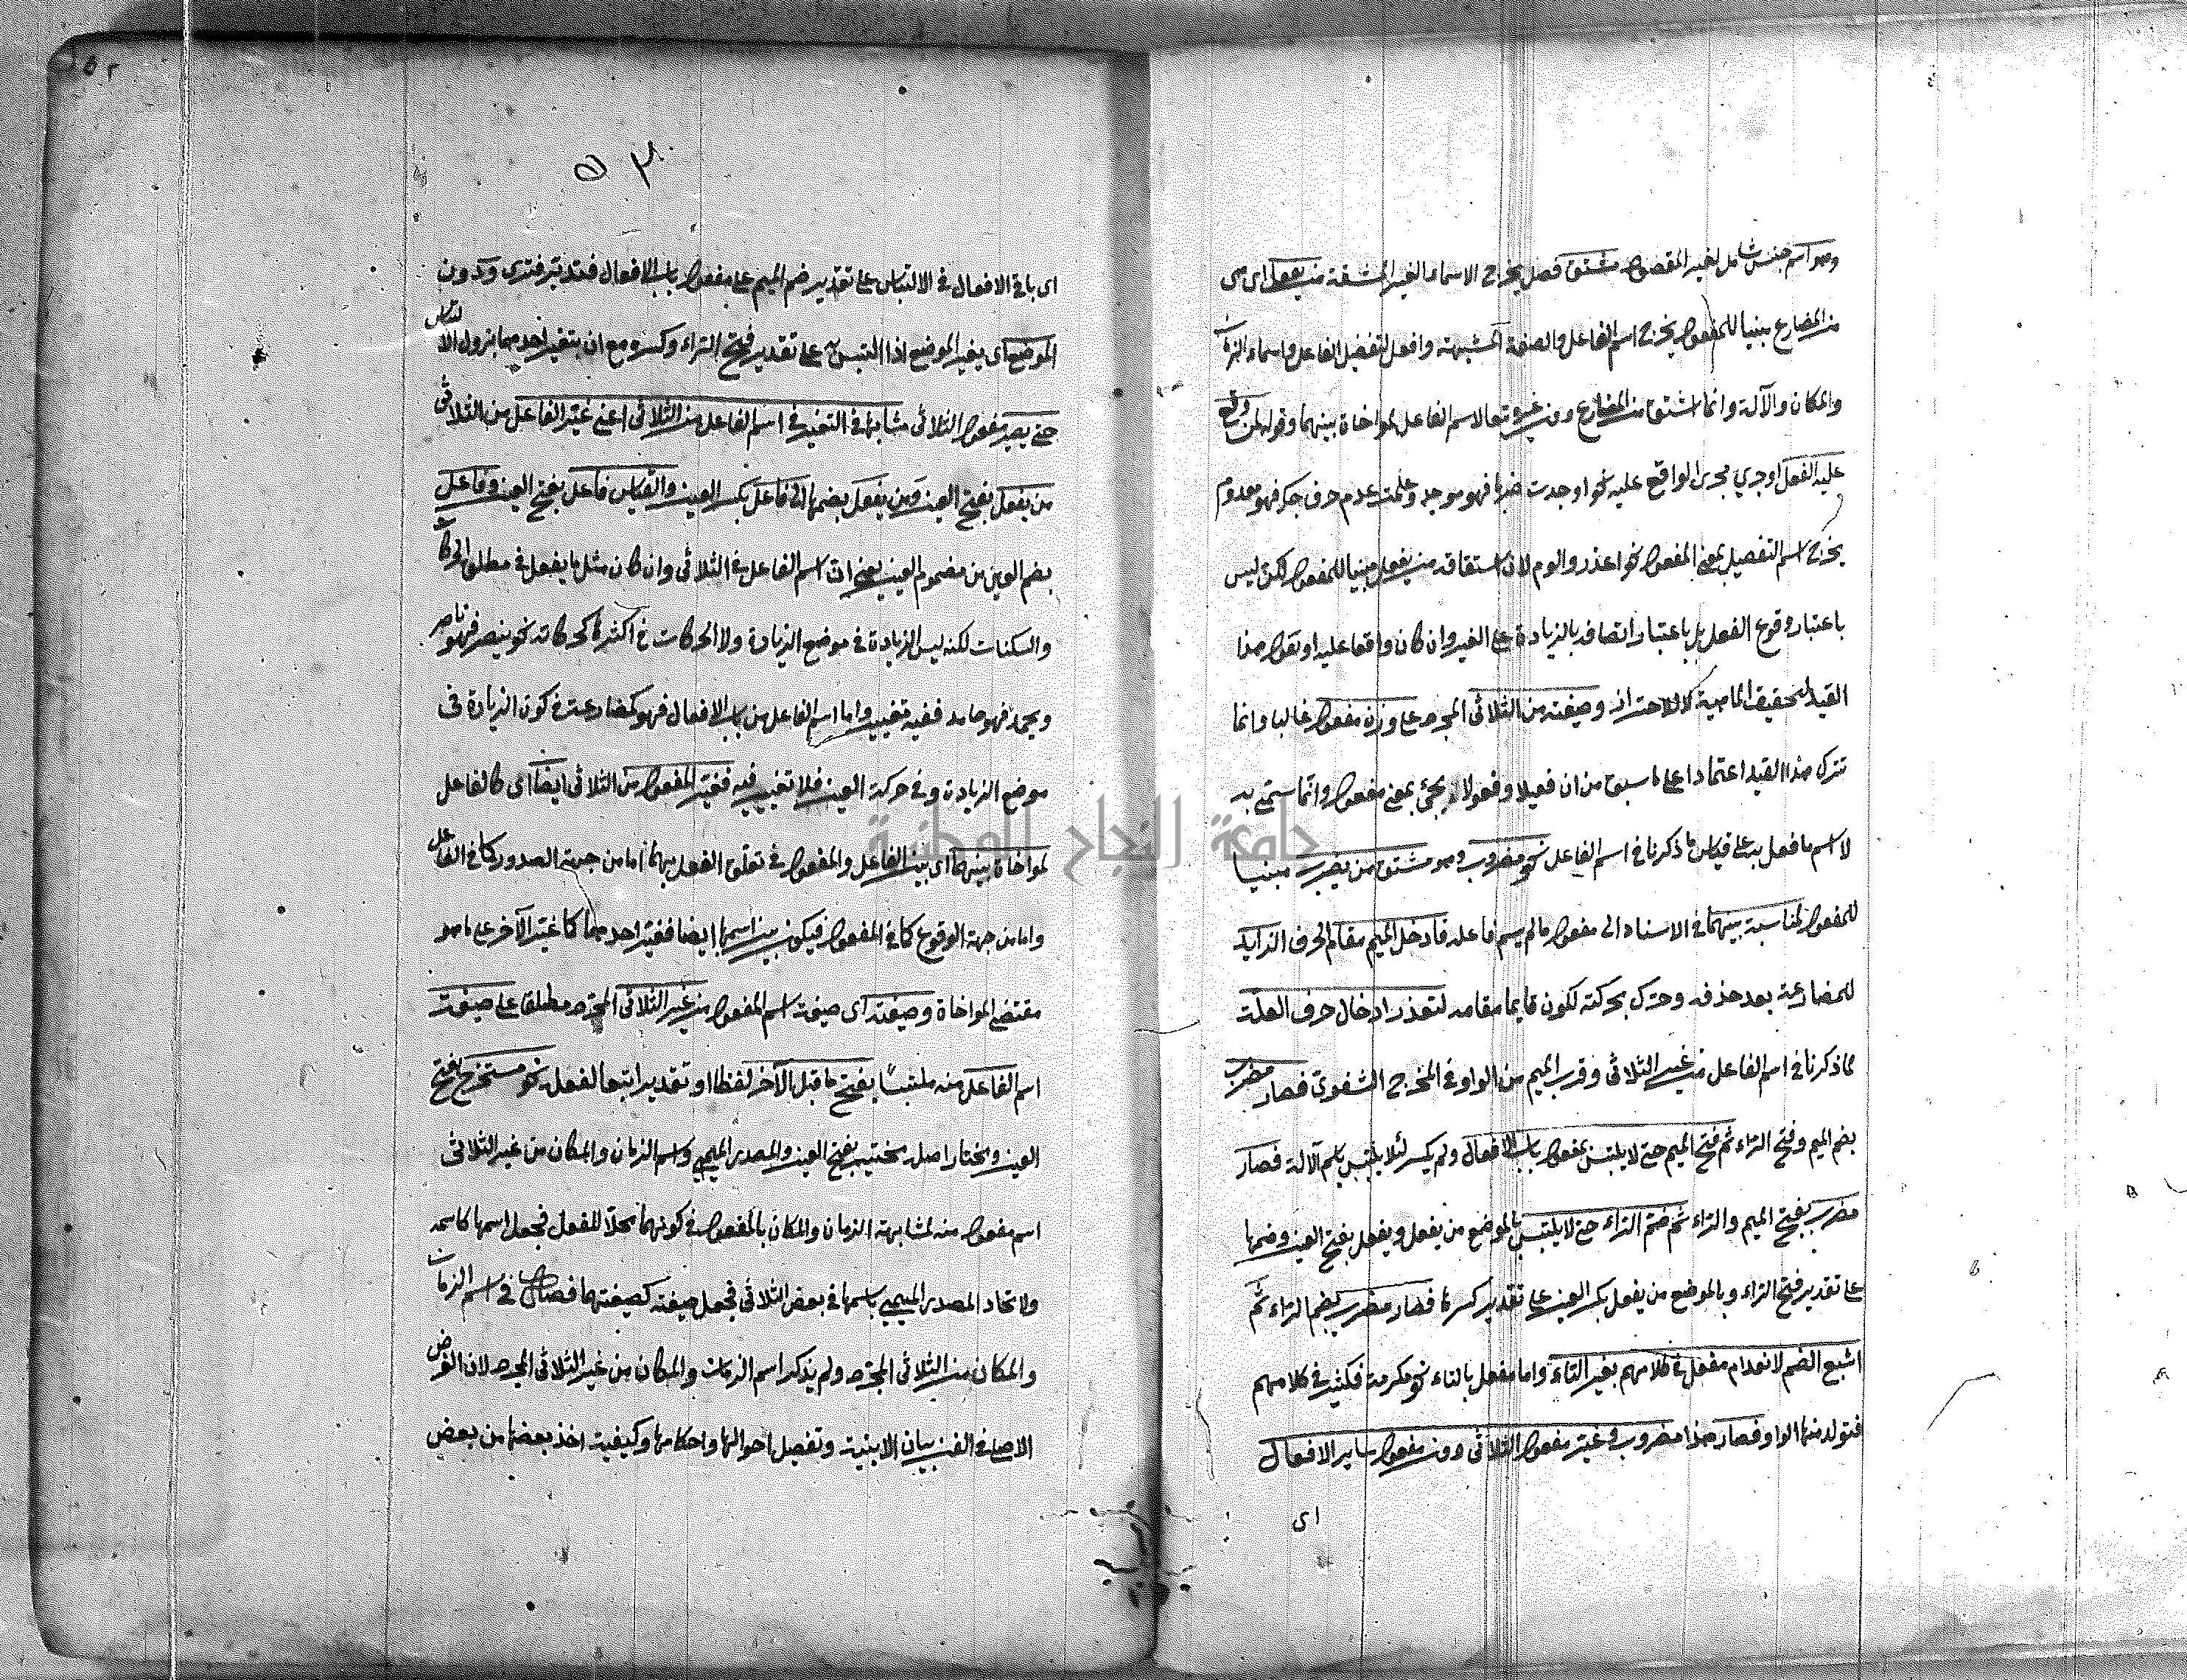 وهو اسم جنس شامل لغير المقصود مشتق فصل يخرج الاسماء الغير المشتقة من يفعل اى
من المضارع مبنيا للمفعول يخرج اسم الفاعل والصفة المشبهة وافعل لتفضيل الفاعل واسماء الزمان
والمكان والآلة وانما اشتق من المضارع دون غيره تبعا لاسم الفاعل لمواخاة بينهما وقوله لمن وقع
عليه الفعل او جري مجرى الواقع عليه نحو اوجدت ضربا فهو موجد وعلمت عدم فهو معدوم
يخرج اسم التفضيل بمعنى المفعول نحو اعذر والوم لان اشتقاقه من يفعل مبنيا للمفعول لكن ليس
باعتبار وقوع الفعل بل باعتبار اتصافه بالزيادة على الغير وان كان واقعا عليه او نقول هذا
القيد لتحقيق الماهية لا للاحتراز وصيغته من الثلاثى المجرد على وزن مفعول غالبا وانما
تترك هذا القيد اعتمادا على ما سبق من ان فعيلا وفعولا يجئ بمعنى مفعول وانما ستمى به
لا اسم ما فعل به على قياس ما ذكرنا في اسم الفاعل نحو مضروب وهو مشتق من يضرب مبنيا
للمفعول لمناسبة بينهما في الاسناد الى مفعول ما لم يسم فاعله فادخل الميم مقام الحرف الزايد
للمضارعة بعد حذفه وحرك بحركته لكون قايما مقامه لتعذر ادخال حرف العلة
لما ذكرنا في اسم الفاعل من غير الثلاثى وقرب الميم من الواو في المخرج الشفوى فصار مضرب
بضم الميم وفتح الراء ثم فتح الميم حتى لا يلتبس بمفعول باب الافعال ولم يكسر لئلا يلتبس باسم الآلة فصار
مضرب بفتح الميم والراء ثم ضم الراء حتى لا يلتبس بالموضع من يفعل ويفعل بفتح العين وضمها
على تقدير فتح الراء وبالموضع من يفعل بكسر العين على تقدير كسرها فصار مضرب بضم الراء ثم
اشبع الضم لانعدام مفعل في كلامهم بغير التاء واما مفعل بالتاء نحو مكرمة فكثير في كلامهم
فتولد منها الواو فصار هذا مضروب وغير مفعول الثلاثى دون مفعول ساير الافعال
اى
٥٣
اى باقى الافعال في الالتباس على تقدير ضم الميم على مفعول باب الافعال فتدبر ودون
الموضع اى يغير الموضع اذا التبس به على تقدير فتح الراء وكسره مع ان بتغير احدهما يزول الالتباس
حتى يصير مفعول الثلاثى مشابها في التغير في اسم الفاعل من الثلاثى اعنى غير الفاعل من الثلاثى
من يفعل بفتح العين ومن يفعل بضمها الى فاعل بكسر العين والقياس فاعل بفتح العين وفاعل
بضم العين من مضموم العين يعنى ان اسم الفاعل في الثلاثى وان كان مثل ما يفعل في مطلق الحركات
والسكنات لكنه ليس الزيادة في موضع الزيادة ولا الحركات في اكثرها كحركاته نحو ينصر فهو ناصر
ويحمد فهو حامد ففيه تغيير واما اسم الفاعل من باب الافعال فهو كمضارعه في كون الزيادة في
موضع الزيادة وفي حركة العين فلا تغيير فيه فغير المفعول من الثلاثى ايضا اى كالفاعل
لمواخاة بينهما اى بين الفاعل والمفعول في تعلق الفعل بهما اما من جهة الصدور كما في الفاعل
واما من جهة الوقوع كما في المفعول فيكون بين اسمهما ايضا فغير احدهما كما غير الآخر على ما هو
مقتضى المواخاة وصيغته اى صيغة اسم المفعول من غير الثلاثى المجرد مطلقا على صيغة
اسم الفاعل منه ملتبسا بفتح ما قبل الآخر لفظا او تقديرا تبعا لفعله نحو مستخرج بفتح
العين ومختار اصله مختير بفتح العين والمصدر الميمى واسم الزمان والمكان من غير الثلاثى
اسم مفعول منه لمشابهة الزمان والمكان بالمفعول في كونهما محلا للفعل فجعل اسمها كاسمه
ولاتحاد المصدر الميمى باسمها في بعض الثلاثى فجعل صيغته كصيغتهما فصل في اسم الزمان
والمكان من الثلاثى المجرد ولم يذكر اسم الزمان والمكان من غير الثلاثى المجرد لان الغرض
الاصلى في الفن بيان الابنية وتفصيل احوالها واحكامها وكيفية اخذ بعضها من بعض